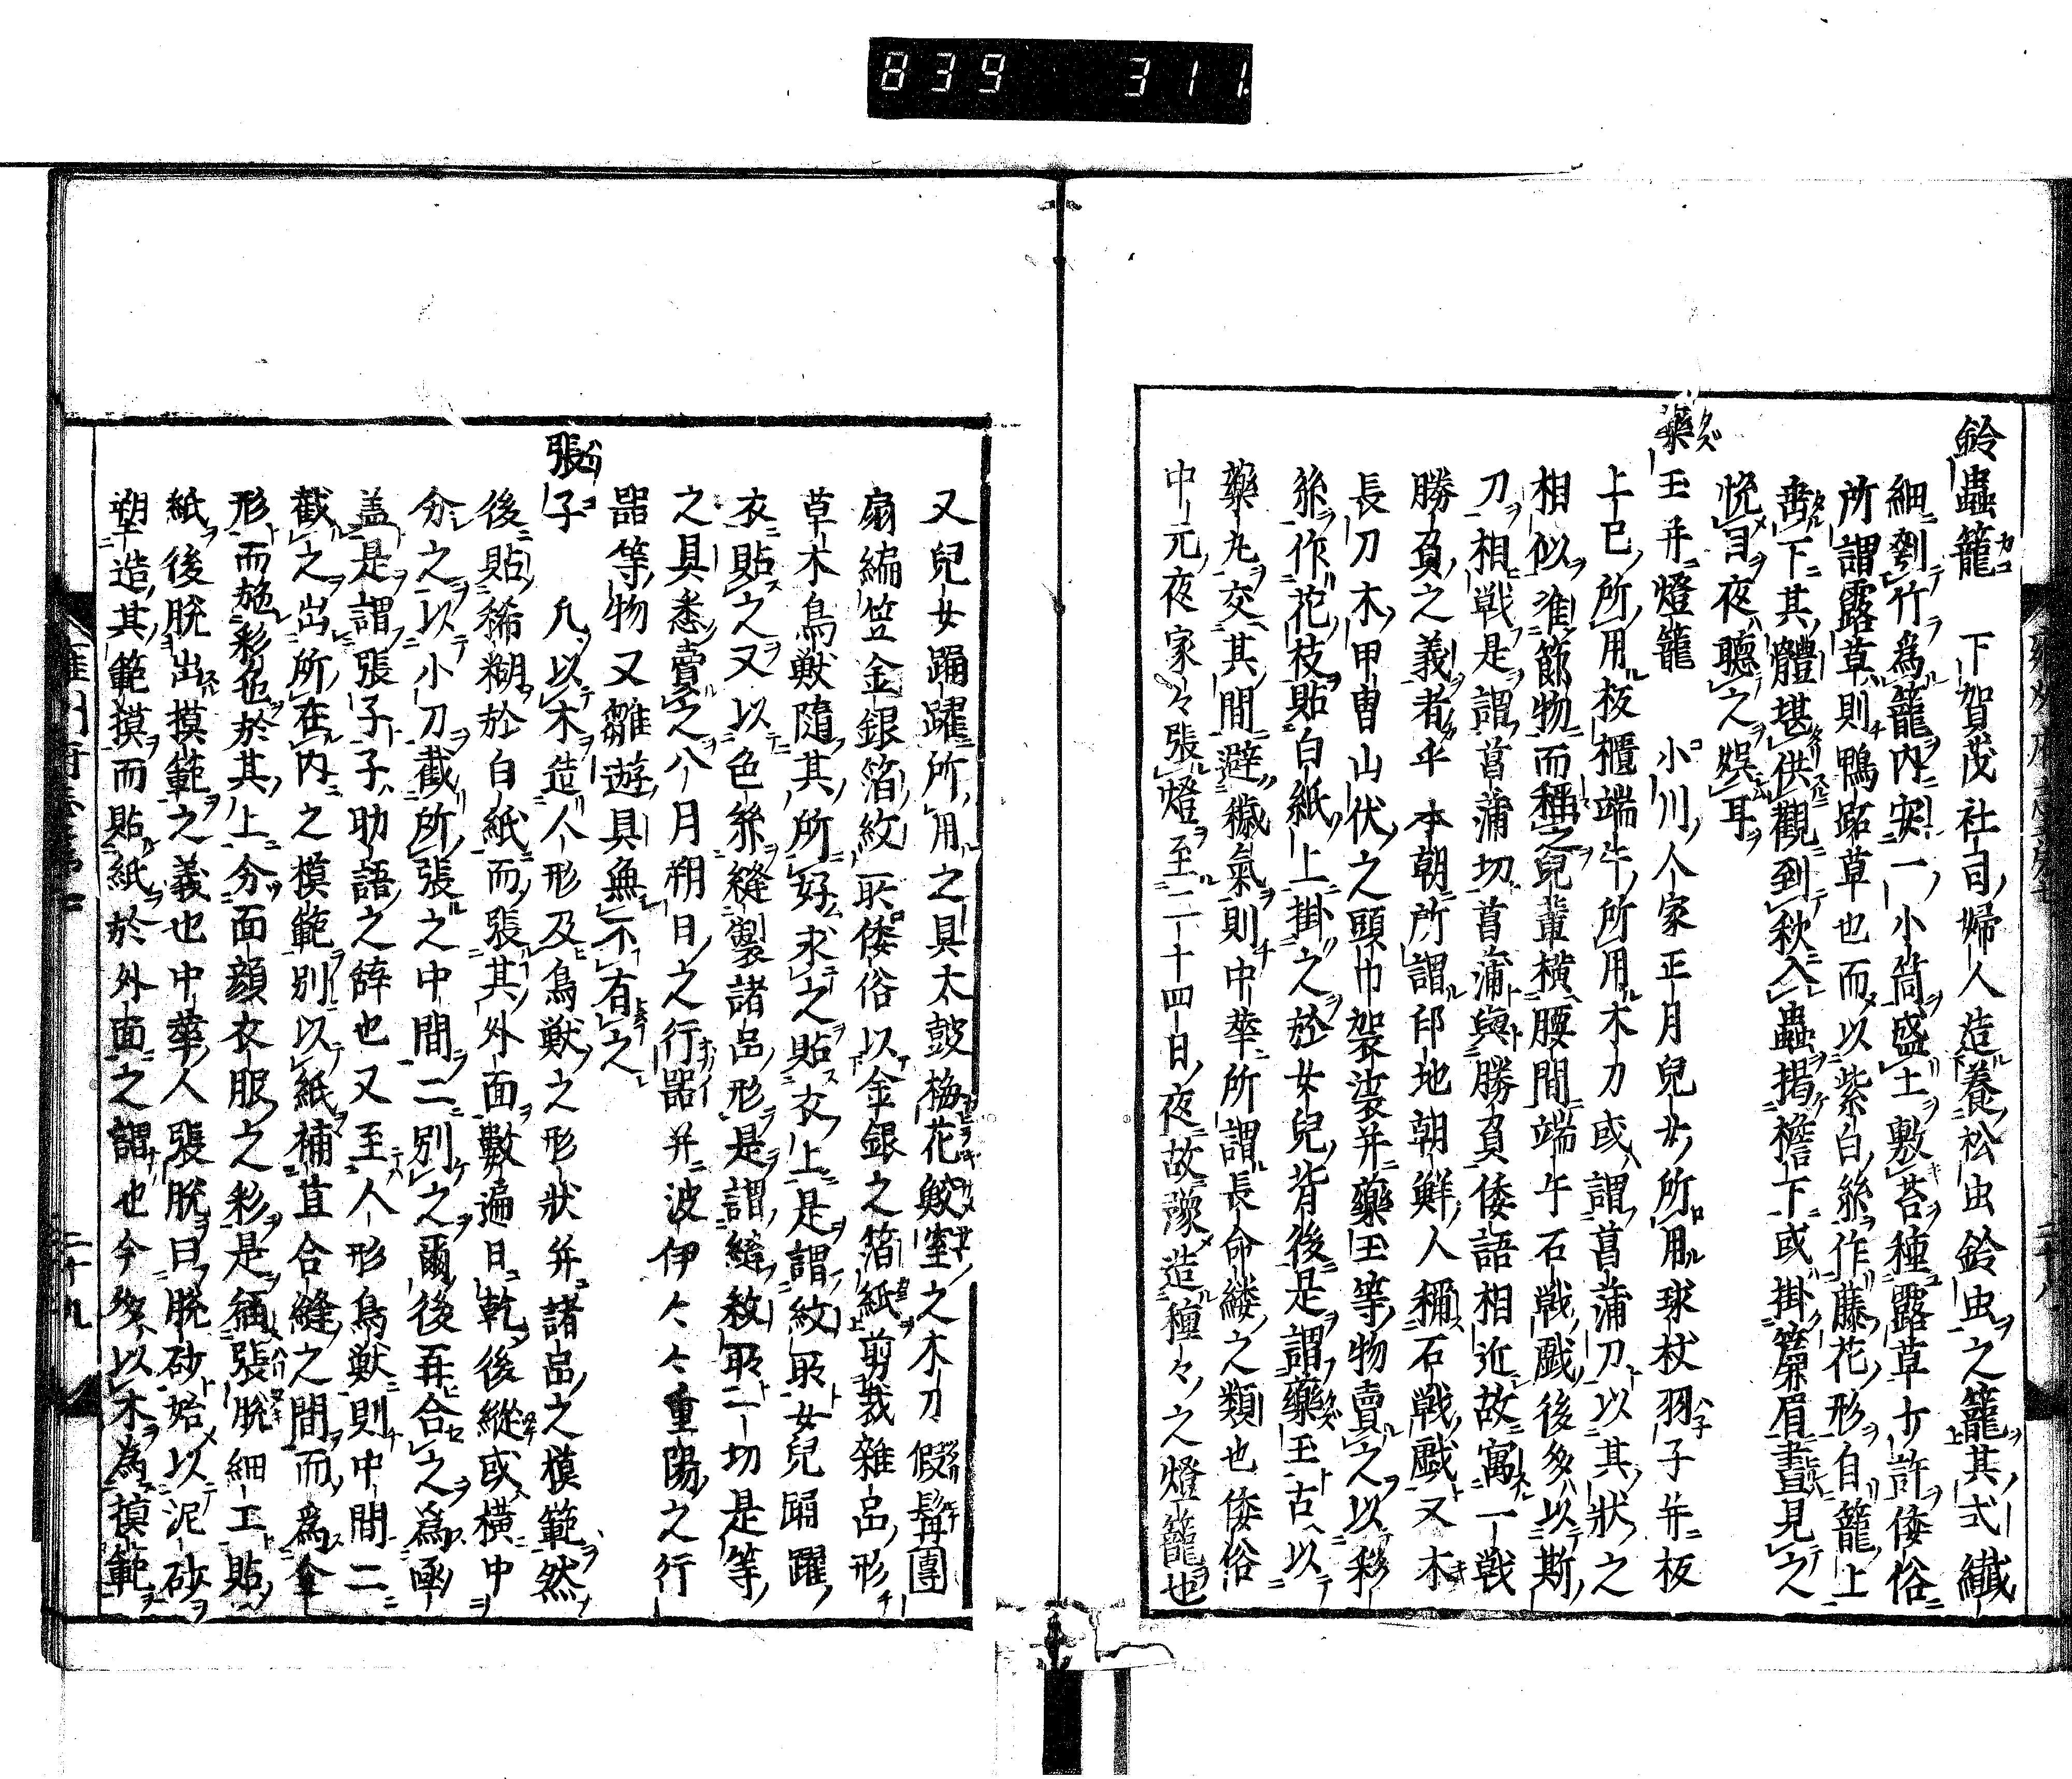 839 311.
鈴蟲籠 下賀茂社司婦人造養松虫鈴虫之籠其式纎
細劉竹爲籠内安一小筒盛土敷苔種露草少許倭俗
所謂露草則鴨跖草也而以紫白絲作藤花形自籠上
垂下其體堪供觀到秋入蟲掲檐下或掛簾眉晝見之
悦目夜聽之娯耳
藥玉并燈籠 小川人家正月兒女所用球杖羽子并板
上巳所用板櫃端午所用木刀或謂菖蒲刀以其狀之
相似准節物而稱之兒輩横腰間端午石戦戲後多以斯
刀相戦是謂菖蒲切菖蒲與勝負倭語相近故寓一戦
勝負之義者乎本朝所謂印地朝鮮人稱石戦戲又木
長刀木甲冑山伏之頭巾袈裟并藥玉等物賣之以彩
絲作花枝貼白紙上掛之於女兒背後是謂藥玉古以
藥丸交其間避穢氣則中華所謂長命縷之類也倭俗
中元夜家々張燈至二十四日夜故豫造種々之燈籠也
又兒女踊躍所用之具太鼓梅花鮫室之木刀假髯團
扇編笠金銀箔紋形倭俗以金銀之箔紙剪裁雜品形
草木鳥獣隨其所好求之貼衣上是謂紋形女兒踊躍
衣貼之又以色絲縫製諸品形是謂縫紋形一切是等
之具悉賣之八月朔日之行器并波伊々々重陽之行
噐等物又雛遊具無不有之
張子 凡以木造人形及鳥獣之形狀并諸品之模範然
後貼稀糊於白紙而張其外面數遍日乾後縱或横中
分之以小刀截所張之中間二別之爾後再合之爲凾
盖是謂張子子助語之辭也又至人形鳥獣則中間二
截之出所在内之模範別以紙補苴合縫之間而爲全
形而施彩色於其上分面顔衣服之彩是稱張脱細工貼
紙後脱出摸範之義也中華人張脱曰脱砂始以泥砂
塑造其範摸而貼紙於外面之謂也今多以木為摸範